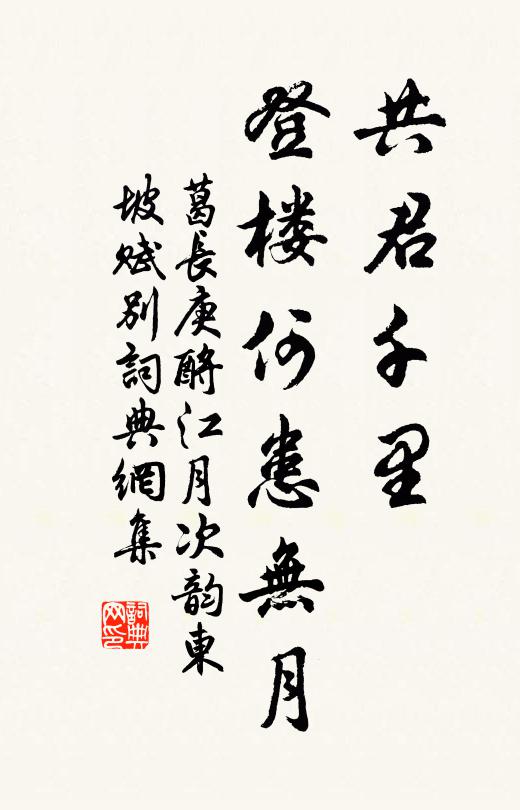 共君千里
登楼何患無月
葛長庚酹江月次韵東
坡赋别詞典網集
詞典
网印